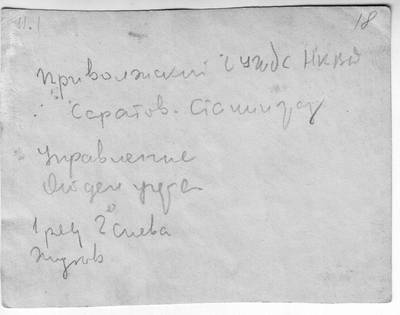 11.1 18
Приволжский ГУЖДС НКВД
Саратов - Сталинград
Управление
1 ряд 2 слева
Жуков